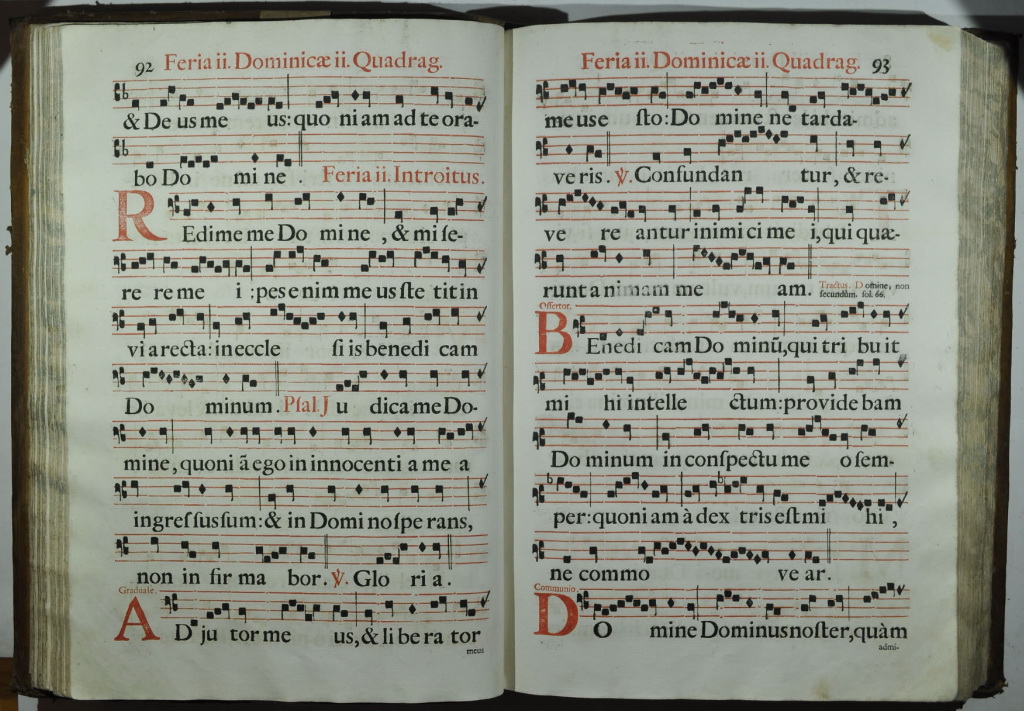 92 Feria ii. Dominicæ ii. Quadrag.
& De us me us: quo ni am ad te ora-
bo Do mi ne Feria ii. Introitus.
REdime me Do mi ne , & mi ſe-
re re me i : pes enim me us ſte tit in
vi a recta: in eccle ſi is benedi cam
Do minum. Pſal. J u dica me Do-
mine, quoni ã ego in innocenti a me a
ingreſſus ſum: & in Domi no ſpe rans,
non in fir ma bor. ℣. Glo ri a.
Graduale.
AD ju tor me us, & li be ra tor
meus
Feria ii. Dominicæ ii. Quadrag. 93
me us e ſto: Do mine ne tarda-
ve ris. ℣. Confundan tur, & re-
ve re antur inimi ci me i, qui quæ-
runt animam me am. Tractus. Domine, non
ſecundùm. fol. 66.
Offertor.
BEnedi cam Do minũ, qui tri bu it
mi hi intelle ctum: provide bam
Do minum in conſpectu me o ſem-
per: quoni am à dex tris eſt mi hi ,
ne commo ve ar.
Communio.
DO mine Dominus noſter, quàm
admi-